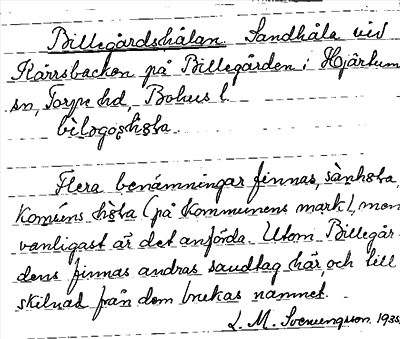 Billegårdshålan. Sandhåla vid
Kärrsbacken på Billegården i Hjärtum
sn, Torpe hd, Bohus l.
Flera benämningar finnas,
(på Kommunens mark), men
vanligast är det anförda. Utom Billegår-
dens finnas andras sandtag här, och till
skilnad från dem brukas namnet.
L. M. Svenungsson 1935